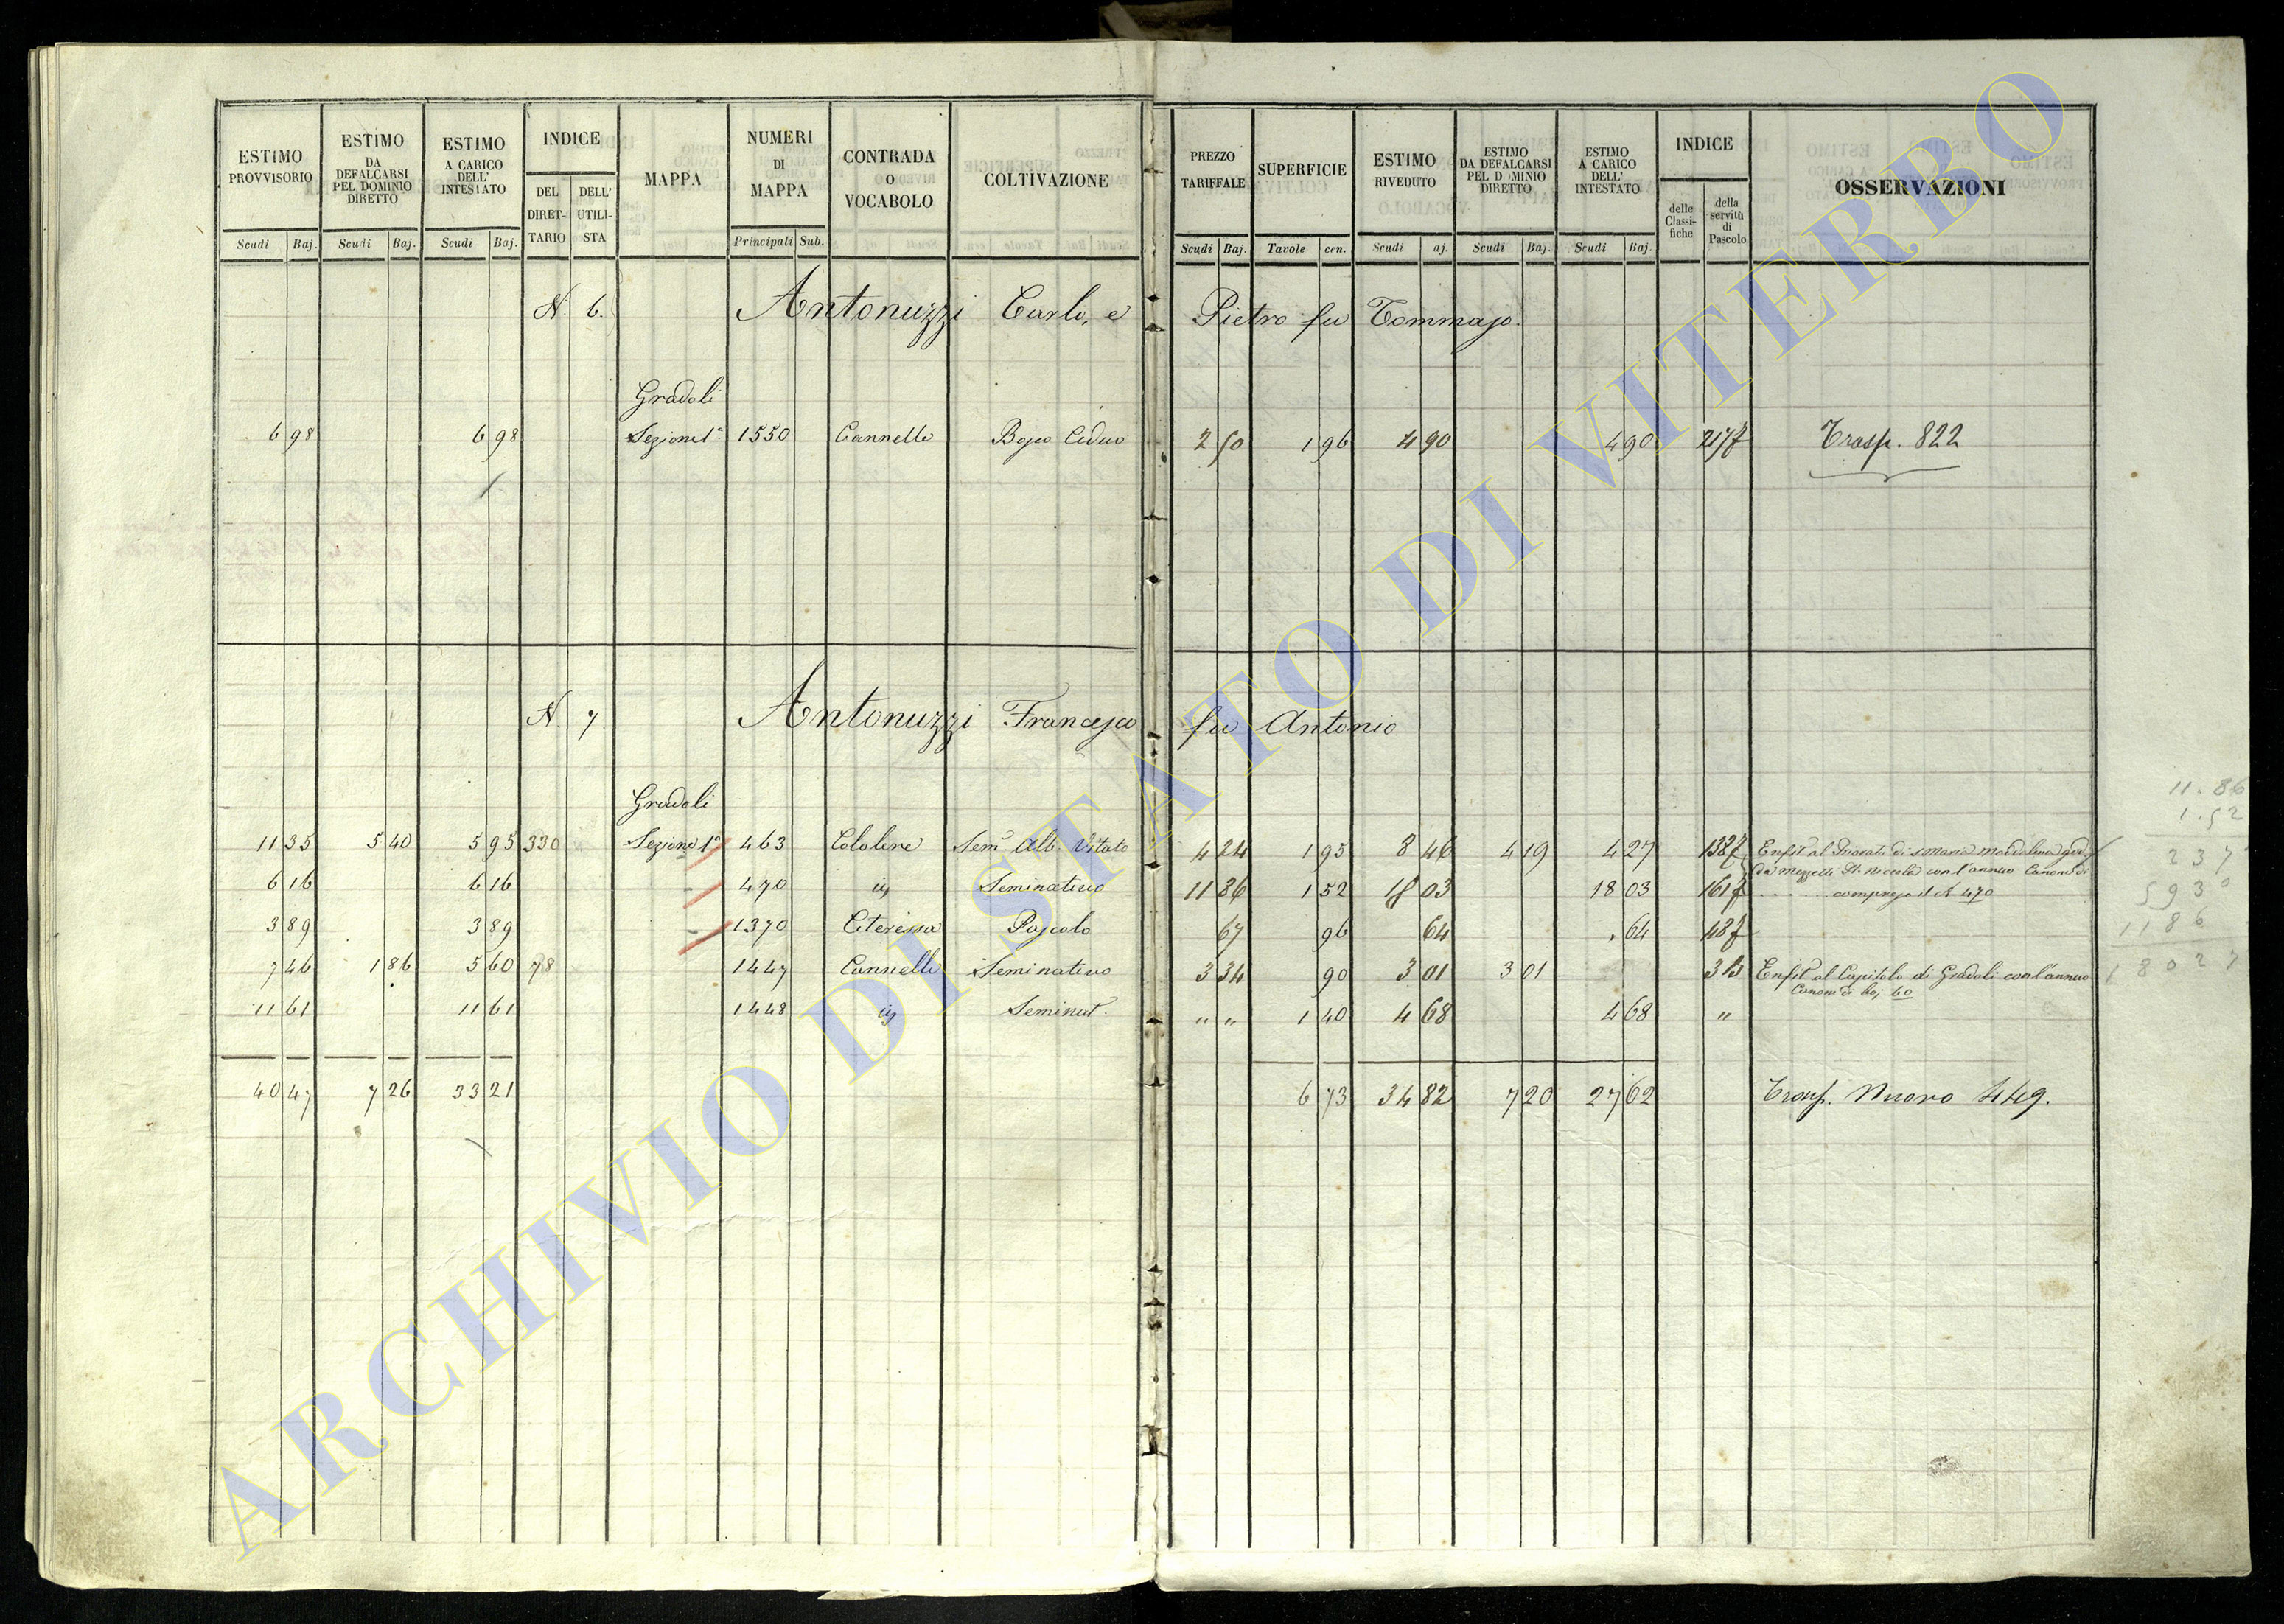 ESTIMO PROVVISORIO Scudi Baj.
ESTIMO DA DEFALCARSI PEL DOMINIO DIRETTO Scudi Baj.
ESTIMO A CARICO DELL' INTESTATO Scudi Baj.
INDICE DEL DIRETTARIO DELL' UTILISTA
MAPPA
NUMERI DI MAPPA Principali Sub.
CONTRADA O VOCABOLO
COLTIVAZIONE
PREZZO TARIFFALE Scudi Baj.
SUPERFICIE Tavole cen.
ESTIMO RIVEDUTO Scudi aj.
ESTIMO DA DEFALCARSI PEL D MINIO DIRETTO Scudi Baj.
ESTIMO A CARICO DELL' INTESTATO Scudi Baj.
INDICE delle Classifiche della servitù di Pascolo
OSSERVAZIONI
N. 6. Antonuzzi Carlo, e Pietro fu Tommaso.
Gradoli
6 98 6 98 Sezione 1ª 1550 Cannelle Bosco Ceduo 2 50 1 96 4 90 4 90 217 f Trasp. 822
N. 7 Antonuzzi Francesco fu Antonio
Gradoli
11 35 5 40 5 95 330 Sezione 1ª 463 Sem.º Alb. Vitato 4 34 1 95 8 46 4 19 4 27 138 f Enfit. al Priorato di S. Maria Maddalena
6 16 6 16 470 Seminativo 11 86 1 52 18 03 18 03 161 f compreso il N. 470
3 89 3 89 1370 Pascolo 67 96 64 . 64 48 f
7 46 1 86 5 60 78 1447 Cannelle Seminativo 3 34 90 3 01 3 01 Enfit. al Capitolo di Gradoli con l'annuo
Canone di baj. 60
11 61 11 61 1448 Seminat. " " 1 40 4 68 4 68 "
40 47 7 26 33 21 6 73 34 82 7 20 27 62 Trasp. Nuovo 449.
11.86
1.52
237
5930
1186
18027
ARCHIVIO DI STATO DI VITERBO